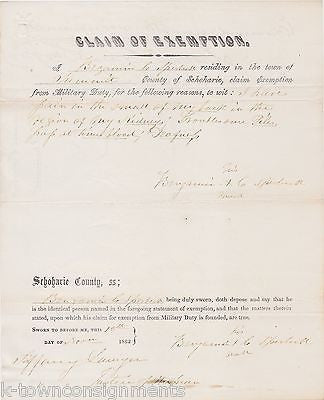 CLAIM OF EXEMPTION.
I Benjamin C residing in the town of
Summit County of Schoharie, claim Exemption
from Military Duty, for the following reasons, to wit: I have
pain in the small of my back in the
region of my Kidneys, Troublesome Piles
pass at times blood, Deafness
his
Benjamin X C
mark
Schoharie County, ss;
Benjamin C being duly sworn, doth depose and say that he
is the identical person named in the foregoing statement of exemption, and that the matters therein
stated, upon which his claim for exemption from Military Duty is founded, are true.
SWORN TO BEFORE ME, THIS 12th his
DAY OF Nov 1862 Benjamin X C
Tiffany Lawyer mark
k-townconsignments.com